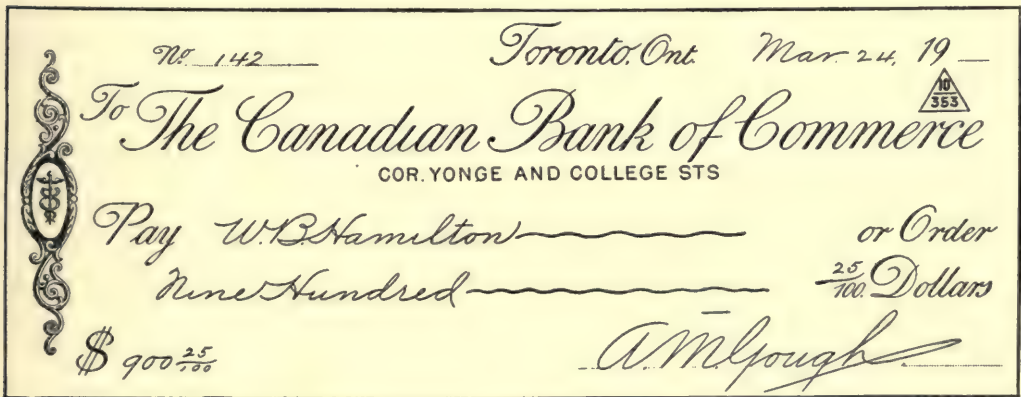 No 142 Toronto. Ont. Mar 24, 19
10
353
To The Canadian Bank of Commerce
COR. YONGE AND COLLEGE STS
Pay W.B Hamilton or Order
Nine Hundred 25/100 Dollars
$ 900 25/100 A. M. Gough